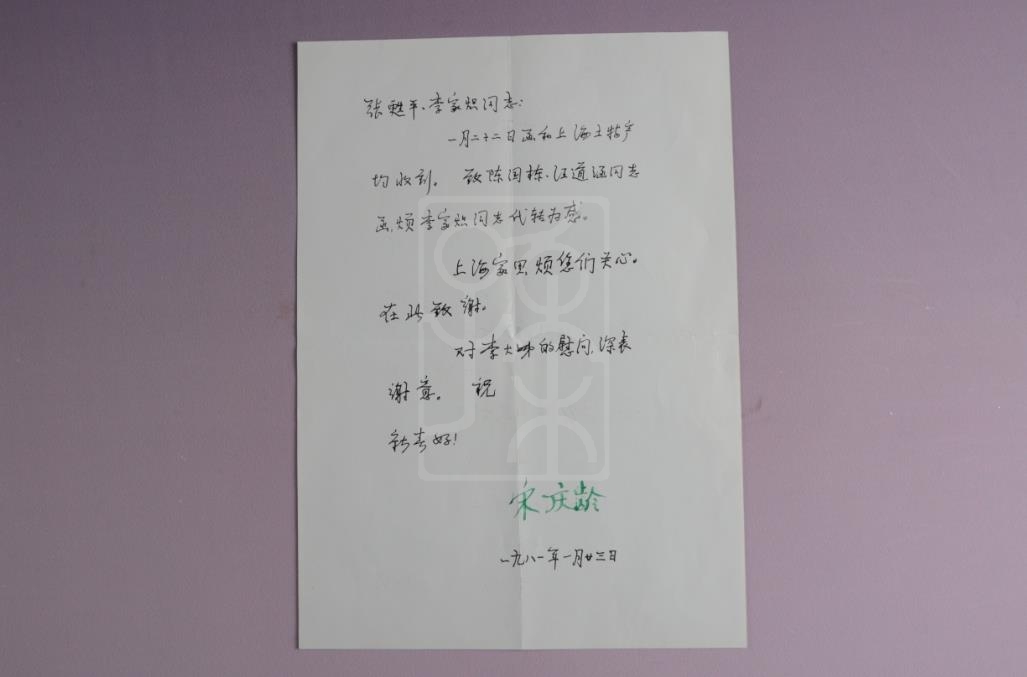 张甦平、李家炽同志：
一月二十二日函和上海土特产
均收到。 致陈国栋、汪道涵同志
函，烦李家炽同志代转为感。
上海家里烦您们关心。
在此致谢。
对李大姊的慰问，深表
谢意。 祝
新春好！
宋庆龄
一九八一年一月廿三日